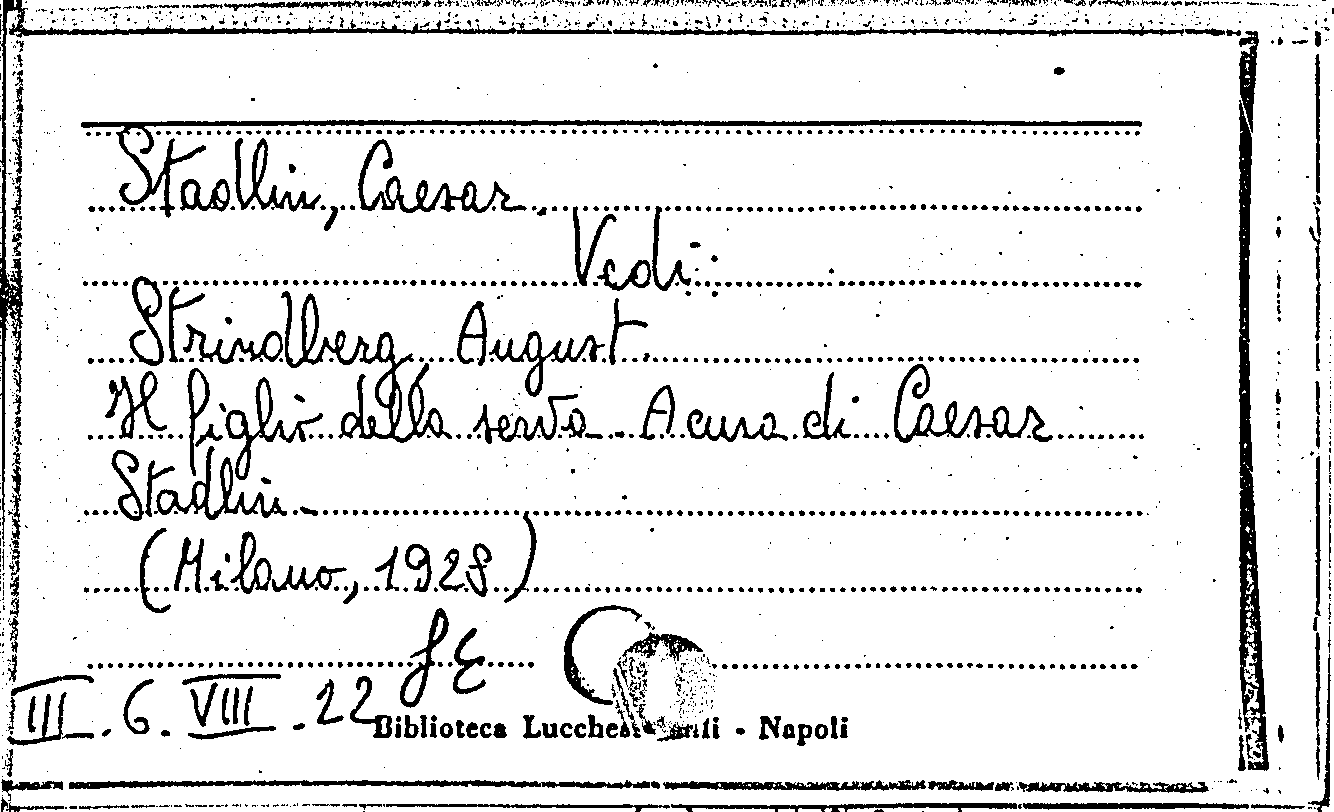 Stadlin, Caesar.
Vedi:
Strindberg, August.
Il figlio della serva. A cura di Caesar
Stadlin.
(Milano, 1928)
III.6.VIII.22
Biblioteca - Napoli